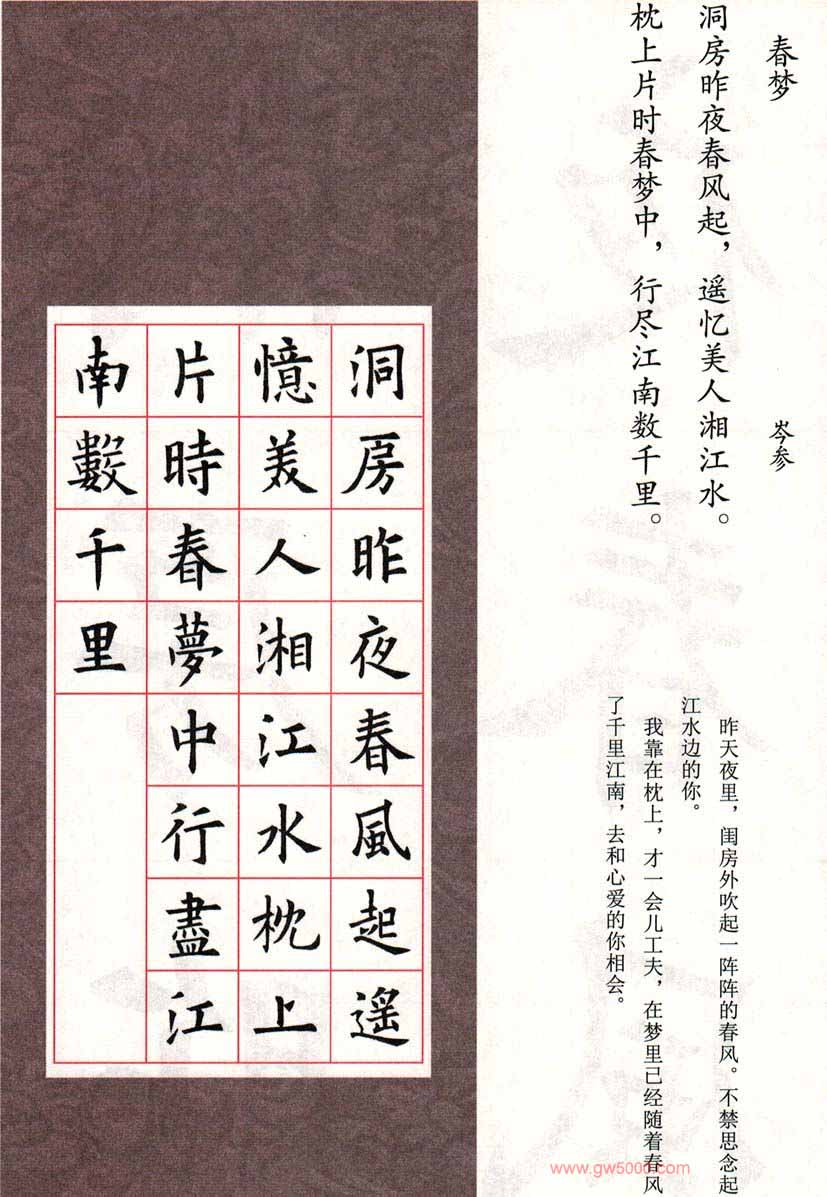 春梦
岑参
洞房昨夜春风起，遥忆美人湘江水。
枕上片时春梦中，行尽江南数千里。
昨天夜里，闺房外吹起一阵阵的春风。不禁思念起
江水边的你。
我靠在枕上，才一会儿工夫，在梦里已经随着春风
了千里江南，去和心爱的你相会。
洞房昨夜春風起遥
憶美人湘江水枕上
片時春夢中行盡江
南數千里
www.gw5000.com